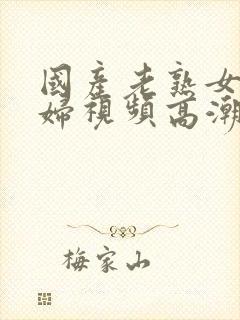 國產老熟女
婦視頻高潮
梅家山